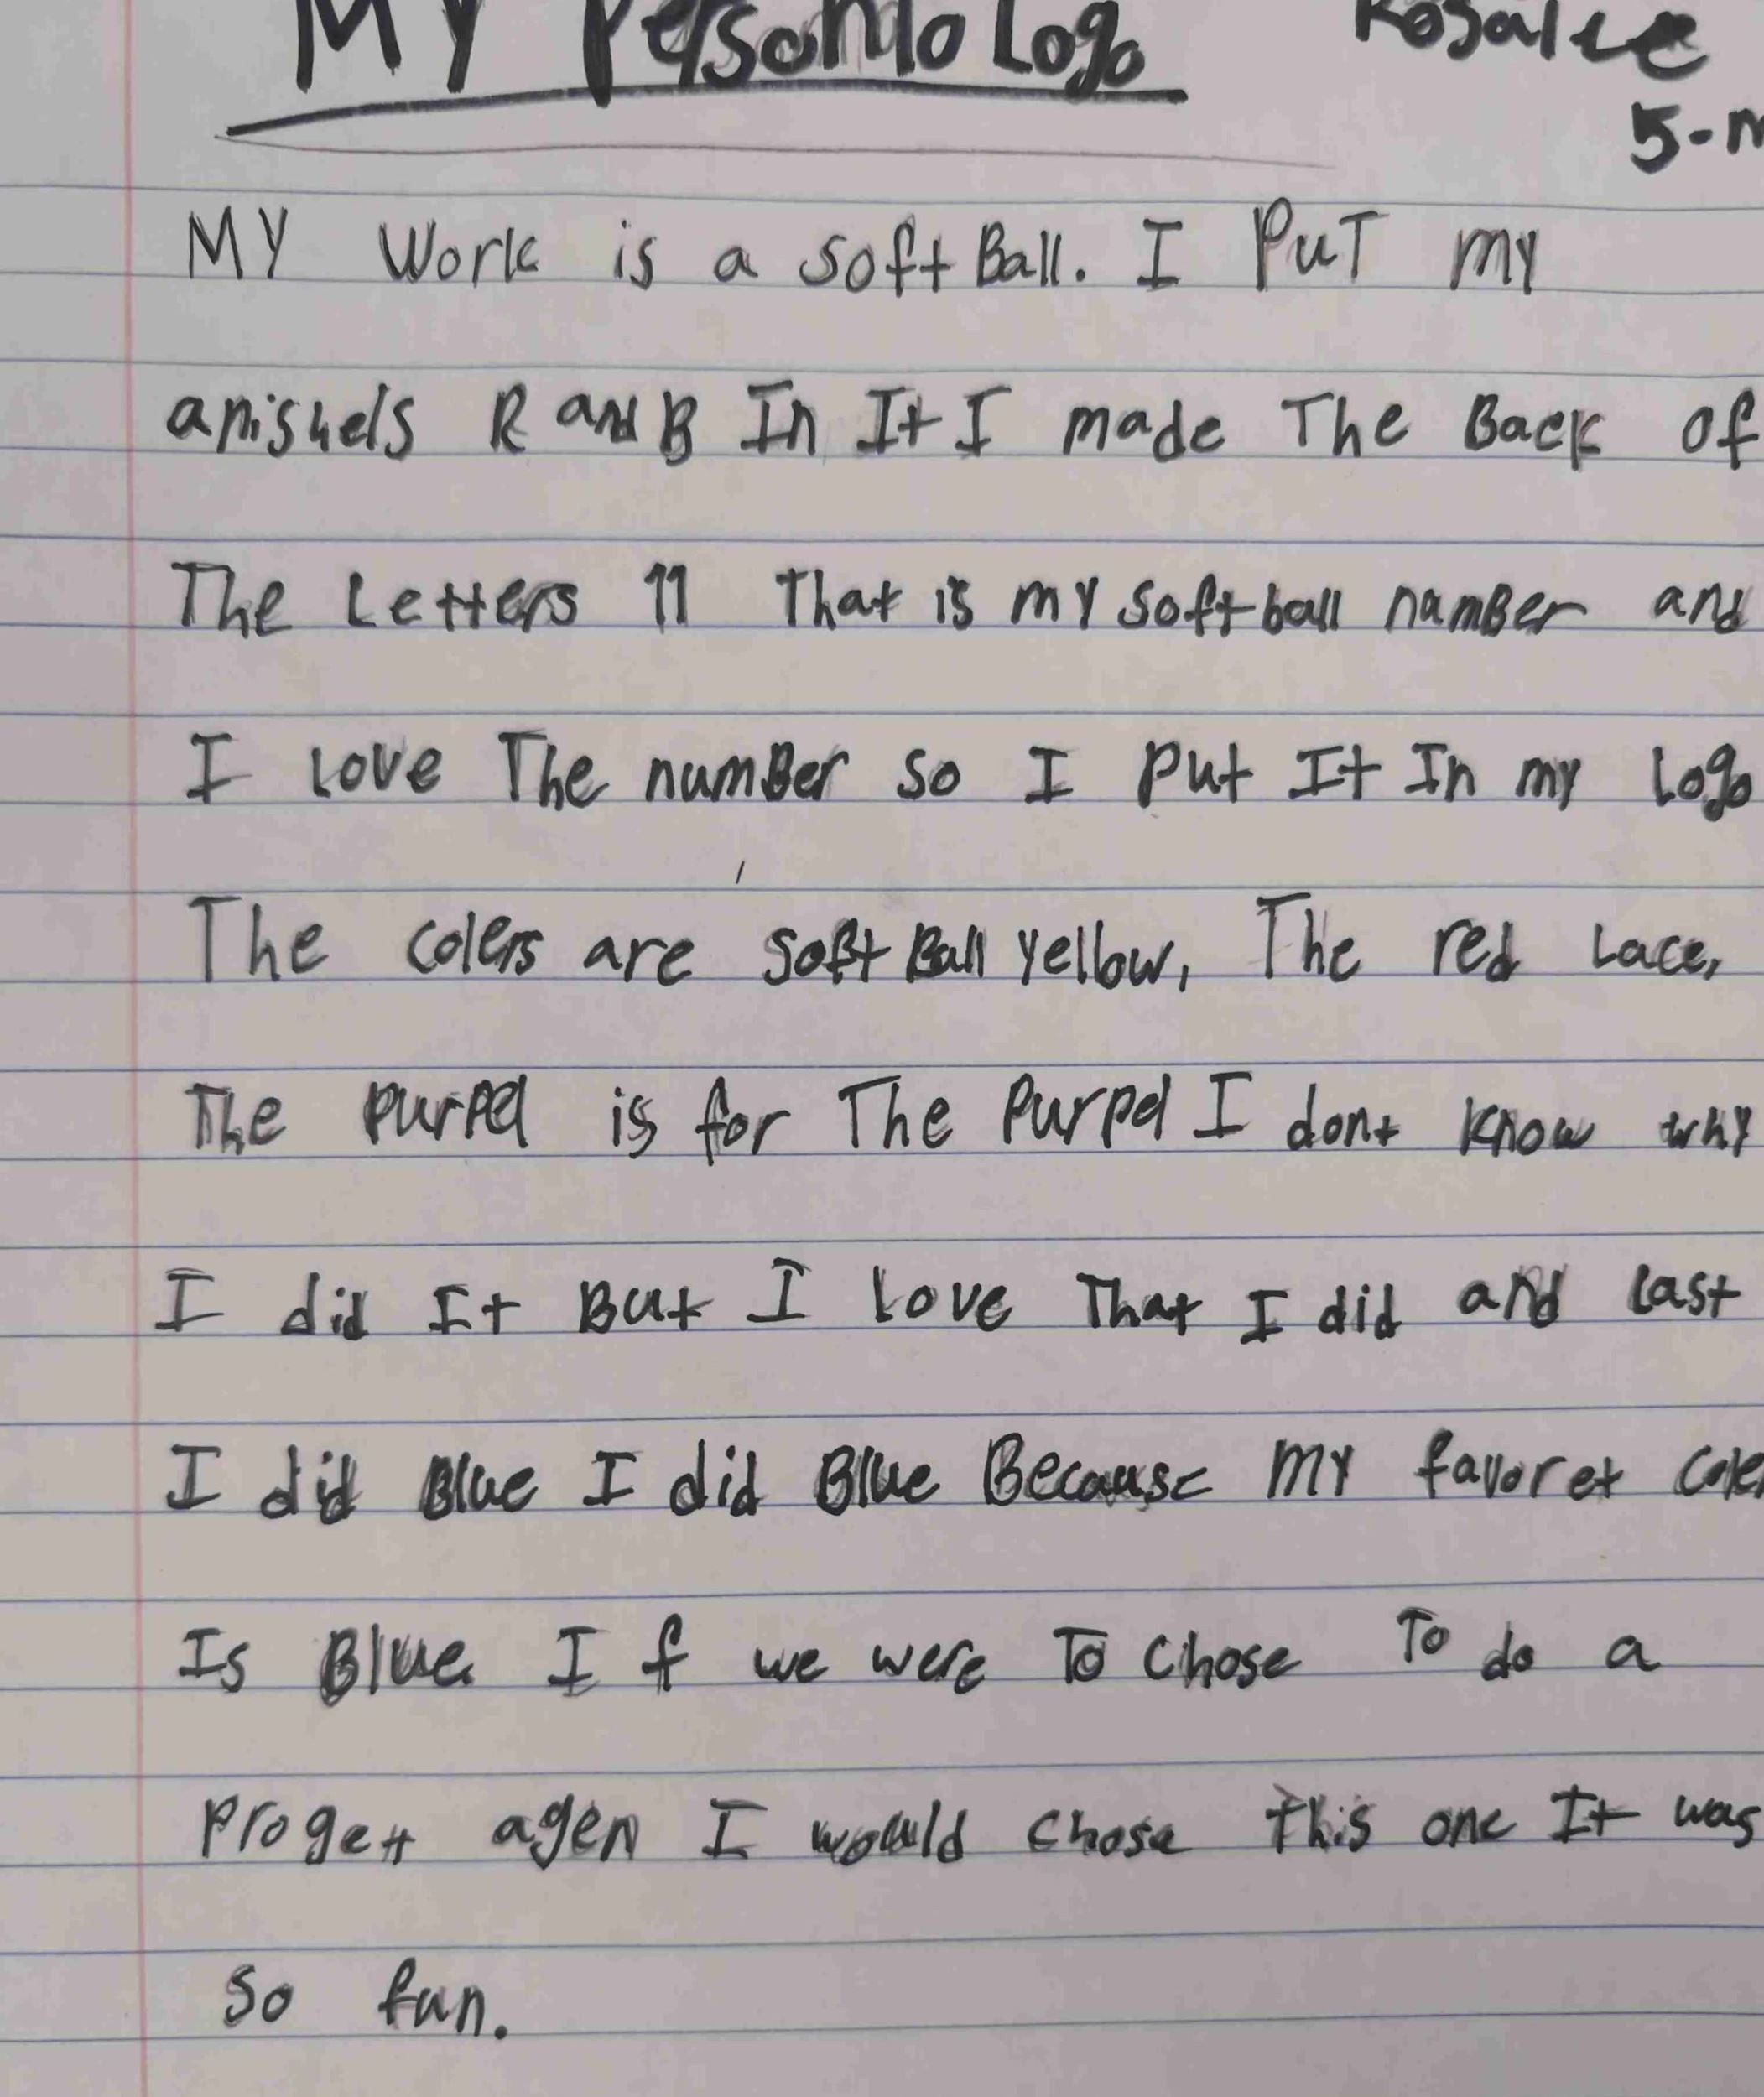 My Persomlo Logo Rosalee
5-m
MY Work is a soft Ball. I PuT my
anishels R and B In It I made The Back of
The Letters 11 That is my softball number and
I Love The number so I Put It In my Logo
The colers are soft Ball yellow, The red Lace,
The purpel is for The Purpel I dont know why
I did It But I Love That I did and Last
I did Blue I did Blue Because my favoret coler
Is Blue I f we were To chose To do a
Progett agen I would chose this one It was
so fun.